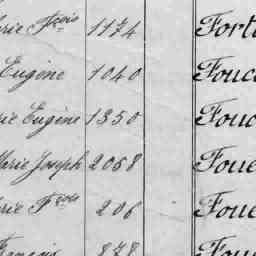 rie Fcois 1174 Fort
Eugène 1040 Fouc
rie Eugène 1350 Fouc
Marie Joseph 2058 Foue
rie Fcois 206 Foue
François 878 Foue